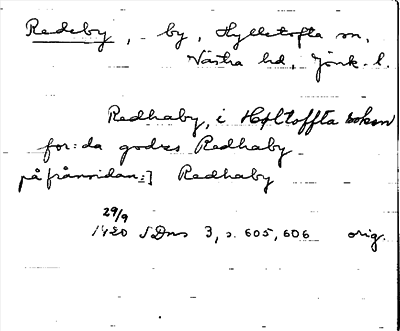 Redeby, - by, Hylletofta sn,
Västra hd, Jönk. l.
Redhaby, i Høltoffta sokn
for: da godzs Redhaby
på frånsidan:] Redhaby
29/9
1420 SDns 3, s. 605, 606 orig.